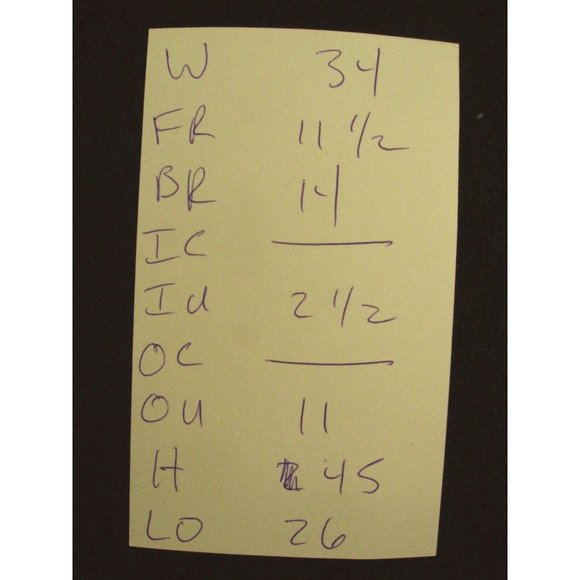 W 34
FR 11 1/2
BR 14
IC —
IU 2 1/2
OC —
OU 11
H 45
LO 26